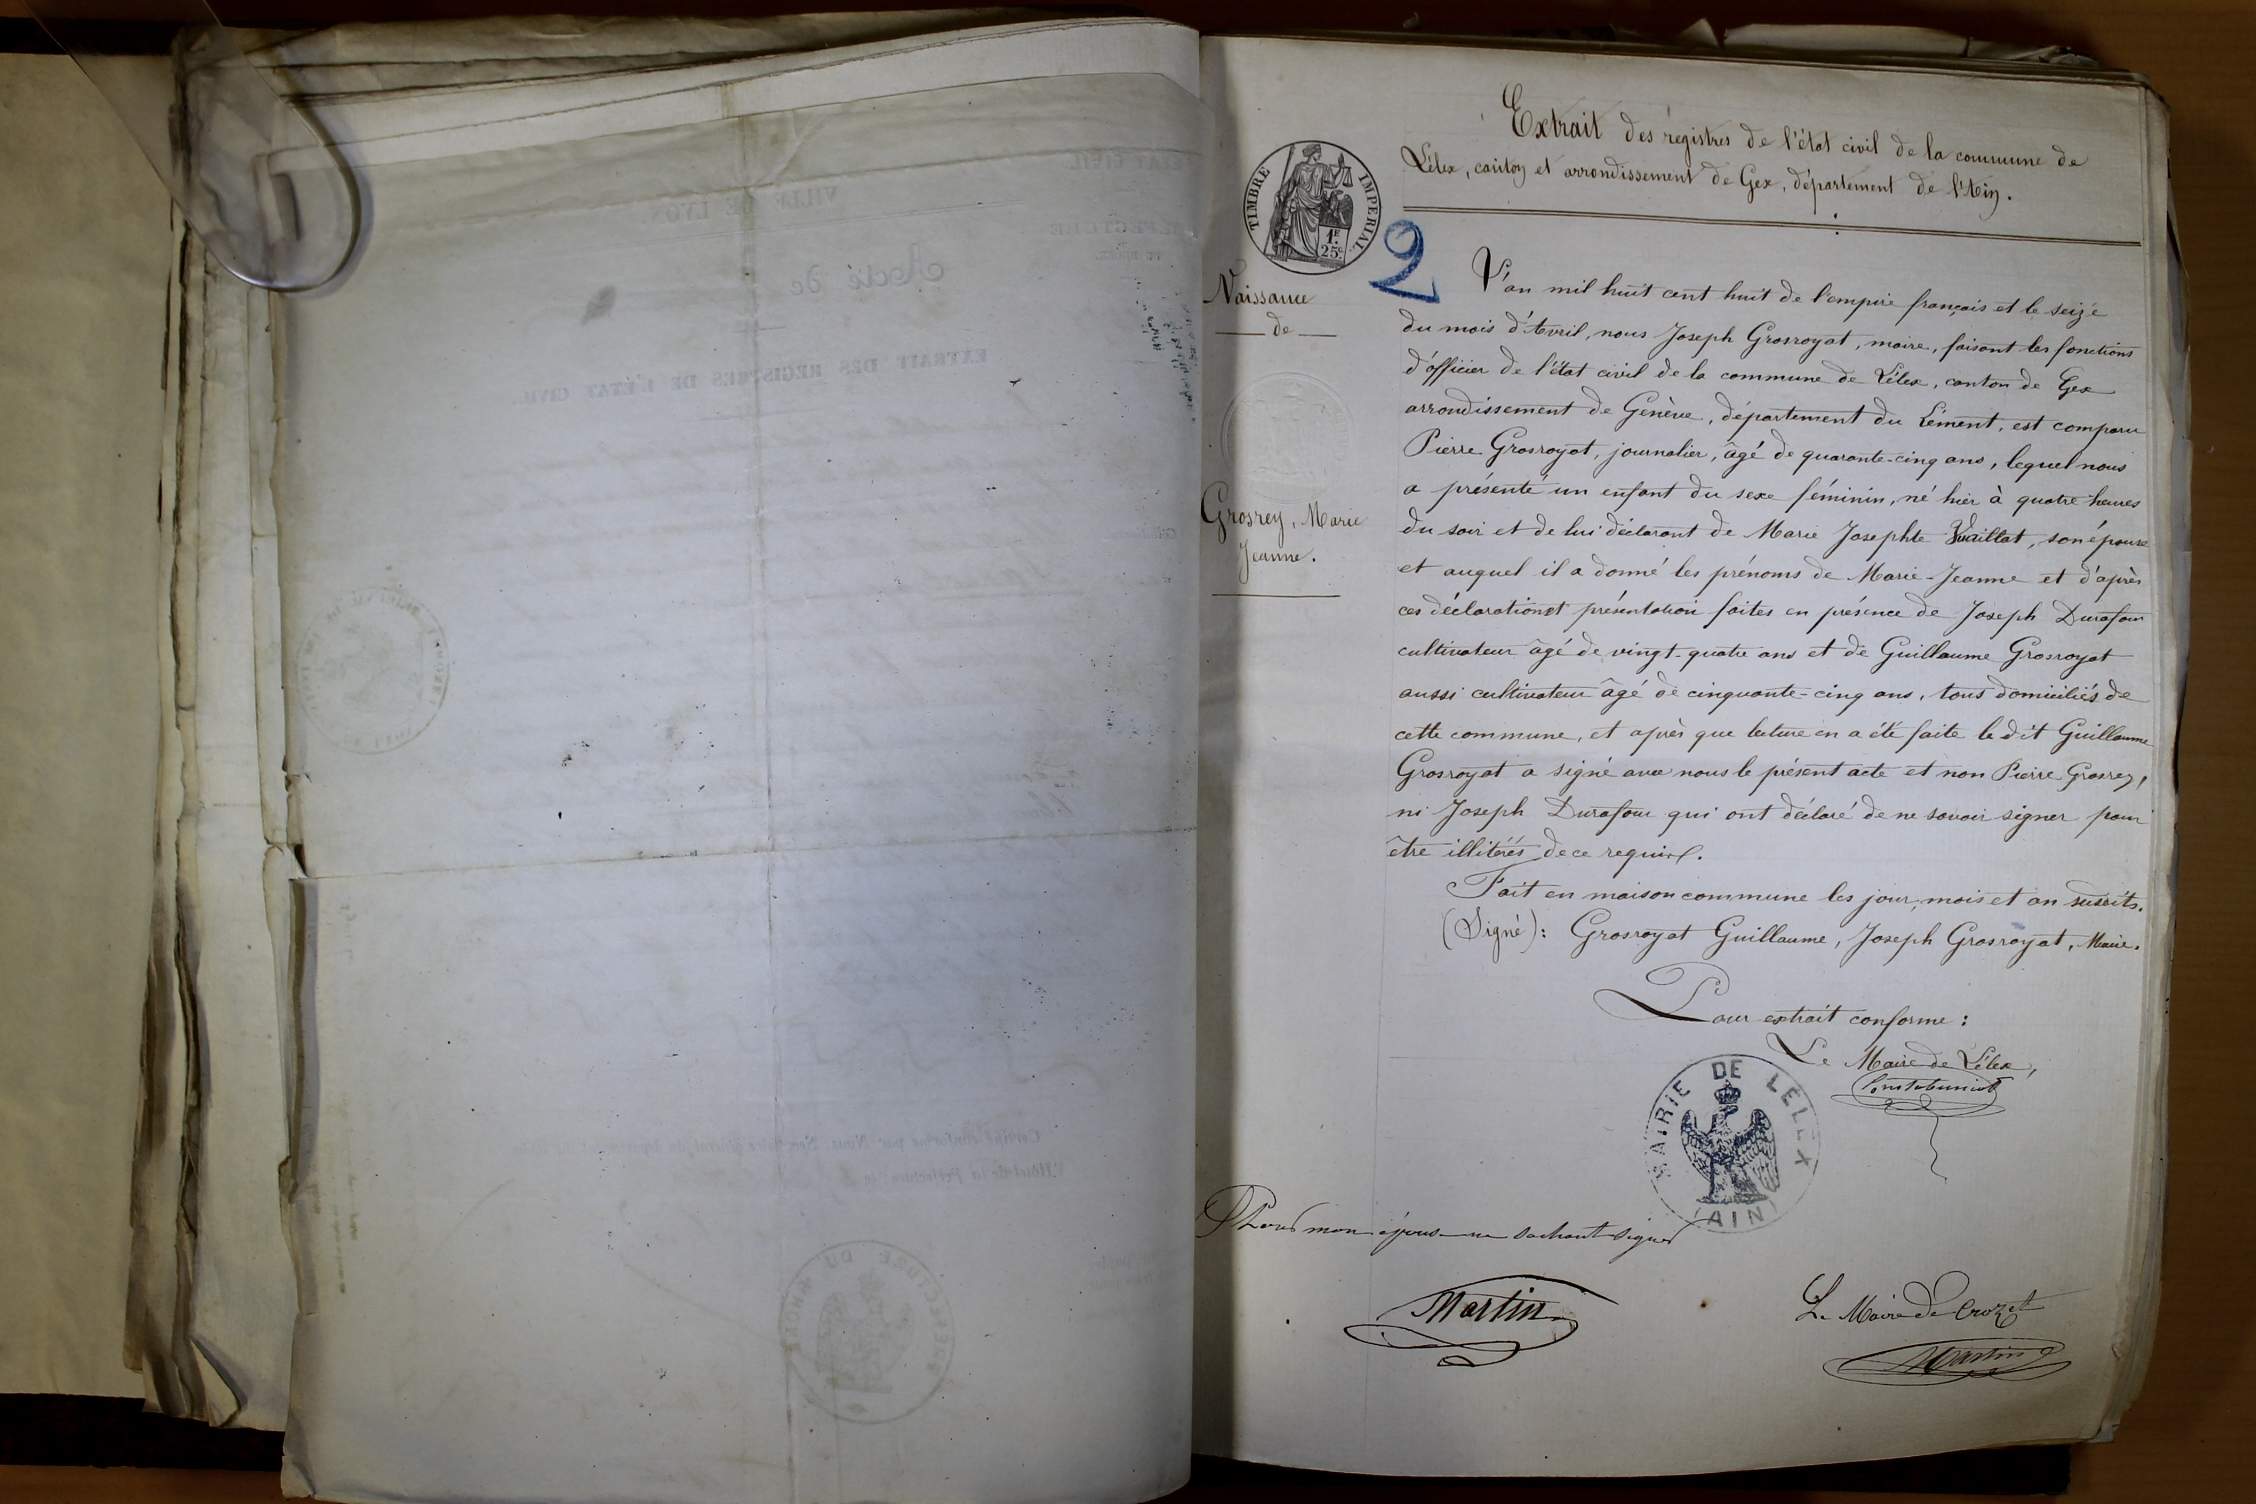 Extrait des régistres de l'état civil de la commune de
Lélex, canton et arrondissement de Gex, département de l'Ain.
TIMBRE IMPERIAL
1F. 25c.
2
Naissance
de
Grosrey, Marie
Jeanne.
L'an mil huit cent huit de l'empire français et le seize
du mois d'Avril, nous Joseph Grosroyat, maire, faisant les fonctions
d'officier de l'état civil de la commune de Lélex, canton de Gex
arrondissement de Genève, département du Lément, est comparu
Pierre Grosroyat, journalier, âgé de quarante-cinq ans, lequel nous
a présenté un enfant du sexe féminin, né hier à quatre heures
du soir et de lui déclarant de Marie Josephte Vuaillat, son épouse
et auquel il a donné les prénoms de Marie-Jeanne et d'après
ces déclarationet présentation faites en présence de Joseph Durafour
cultivateur âgé de vingt-quatre ans et de Guillaume Grosroyat
aussi cultivateur âgé de cinquante-cinq ans, tous domiciliés de
cette commune, et après que lecture en a été faite le dit Guillaume
Grosroyat a signé avec nous le présent acte et non Pierre Grosrey,
ni Joseph Durafour qui ont déclaré de ne savoir signer pour
être illitérés de ce requis.
Fait en maison commune les jour, mois et an susdits.
(Signé): Grosroyat Guillaume, Joseph Grosroyat, Maire.
Pour extrait conforme :
Le Maire de Lélex,
MAIRIE DE LÉLEX
(AIN)
Pour mon épouse ne sachant signer
Martin
Le Maire de Crozet
Martin
VILLE DE LYON
Acte de
EXTRAIT DES REGISTRES DE L'ÉTAT CIVIL